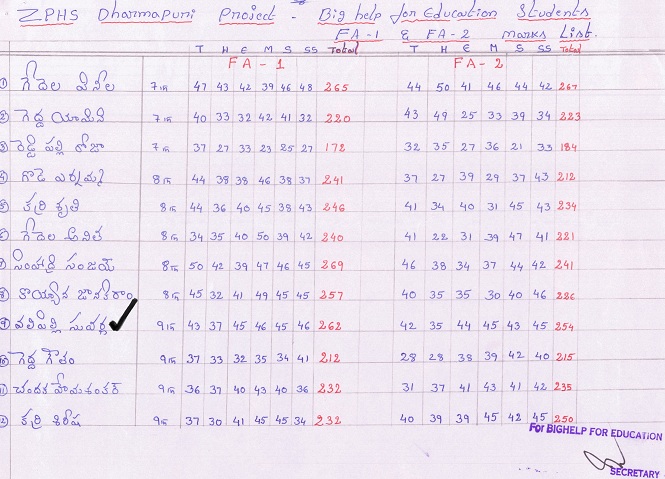 ZPHS Dharmapuri Project - Big help for Education Students
FA-1 & FA-2 marks List.
T H E M S SS Total T H E M S SS Total
FA-1 FA-2
① గేదెల వినీల 7th 47 43 42 39 46 48 265 44 50 41 46 44 42 267
② గెద్ద యామిని 7th 40 33 32 42 41 32 220 43 49 25 33 39 34 223
③ రెడ్డి పల్లి రోజా 7th 37 27 33 23 25 27 172 32 35 27 36 21 33 184
④ 8th 44 38 38 46 38 37 241 37 27 39 29 37 43 212
⑤ కర్రి శృతి 8th 44 36 40 45 38 43 246 41 34 40 31 45 43 234
⑥ గేదెల అనిత 8th 34 35 40 50 39 42 240 41 22 31 39 47 41 221
⑦ సింహాద్రి సంజయ్ 8th 50 42 39 47 46 45 269 46 38 34 37 44 42 241
⑧ జానకిరాం 8th 45 32 41 49 45 45 257 40 35 35 30 40 46 226
⑨ సువర్ణ 9th 43 37 45 46 45 46 262 42 35 44 45 43 45 254
⑩ గెద్ద గౌతం 9th 37 33 32 35 34 41 212 28 28 38 39 42 40 215
⑪ చందక హేమశంకర్ 9th 36 37 40 43 40 36 232 31 37 41 43 41 42 235
⑫ కర్రి శిరీష 9th 37 30 41 45 45 34 232 40 39 39 45 42 45 250
For BIGHELP FOR EDUCATION
SECRETARY